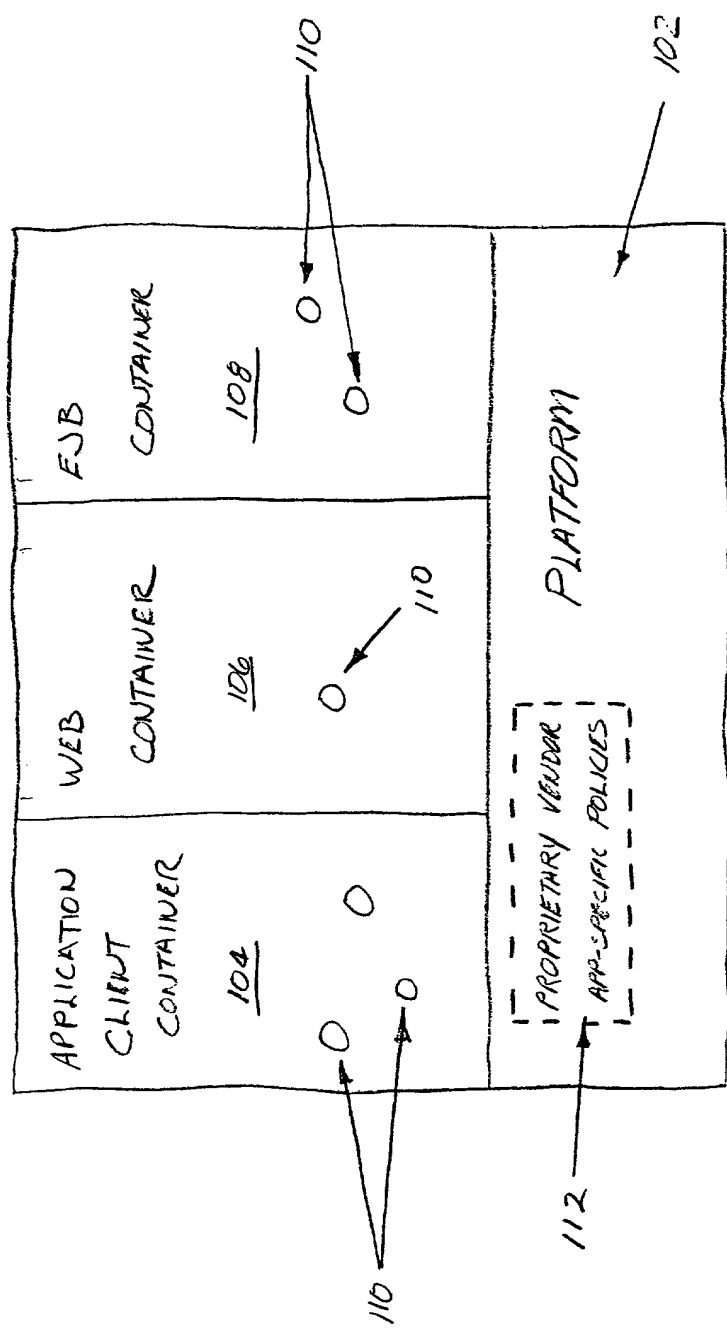 APPLICATION
CLIENT
CONTAINER
104
WEB
CONTAINER
106
EJB
CONTAINER
108
110
110
110
PROPRIETARY VENDOR
APP-SPECIFIC POLICIES
PLATFORM
112
102